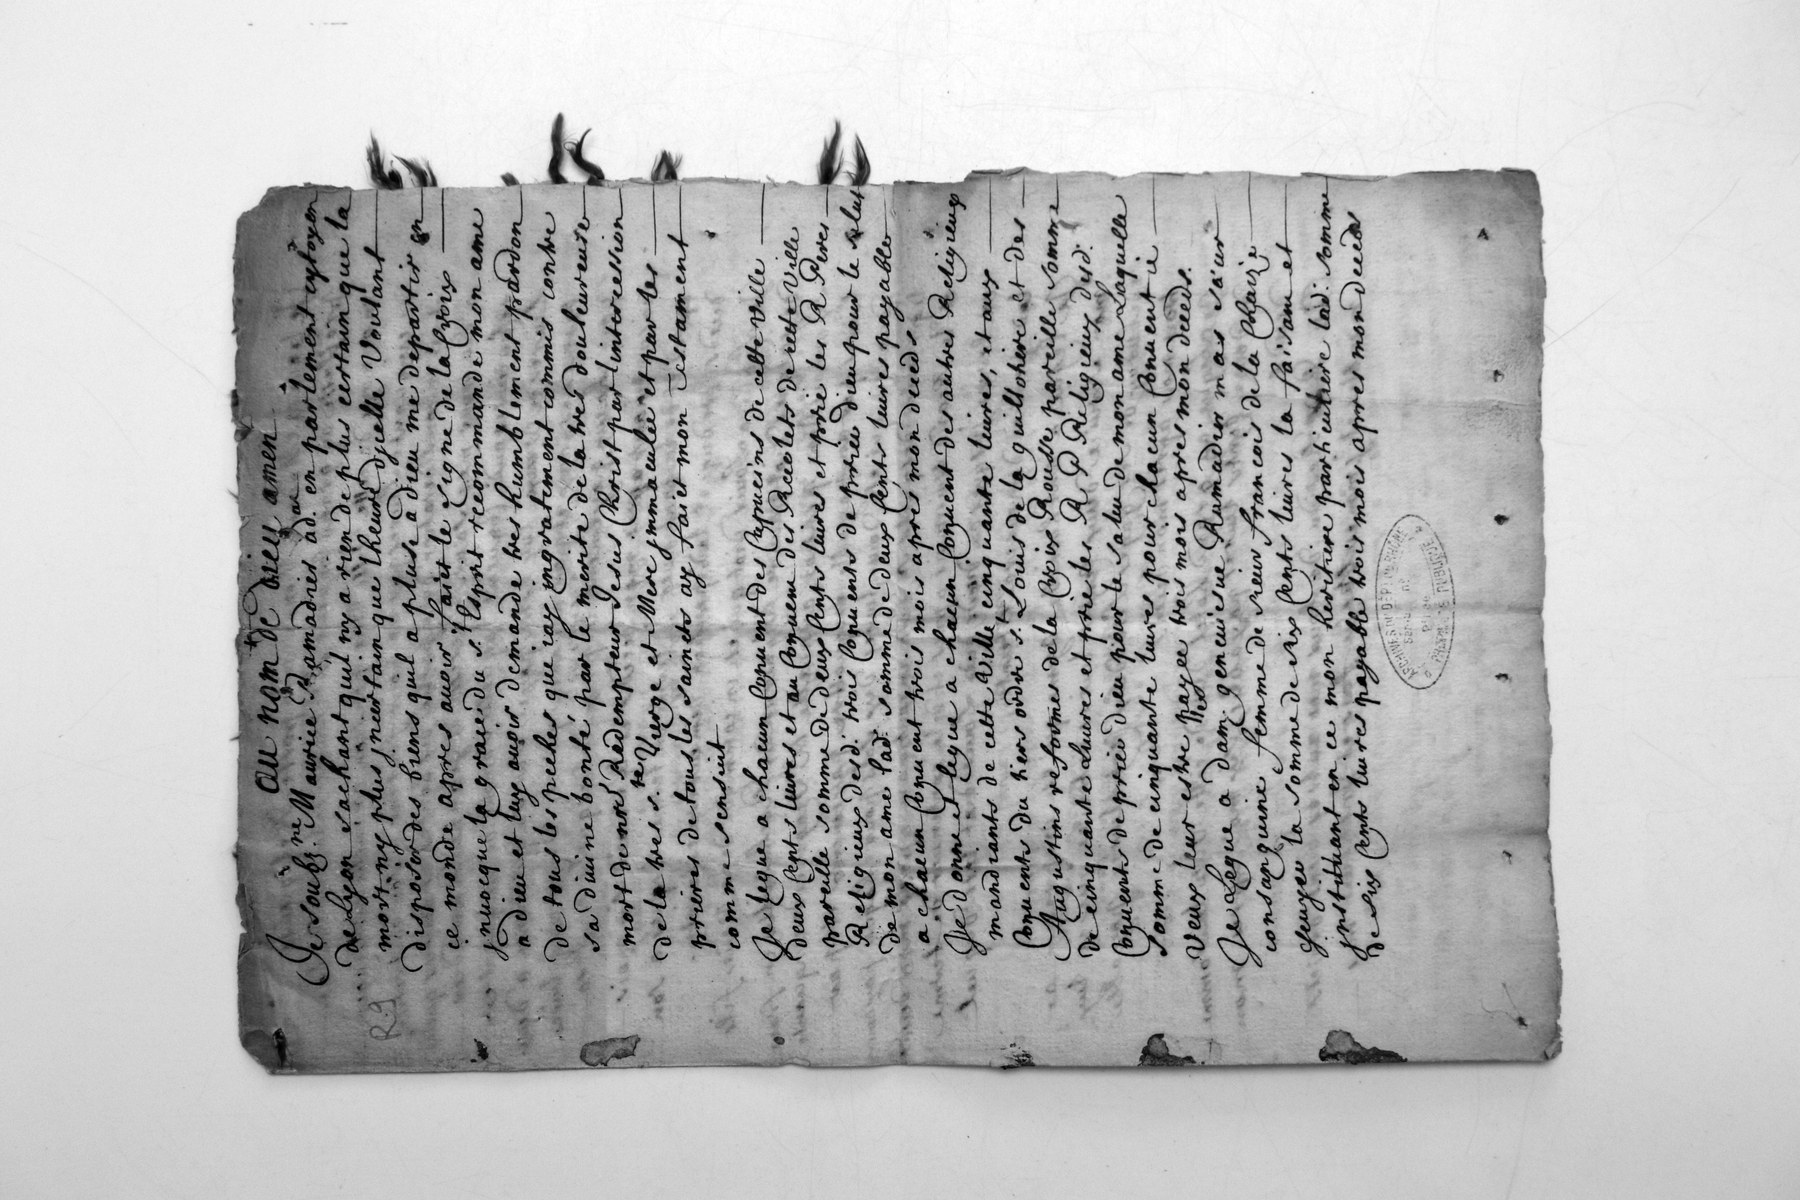 au nom de dieu amen
Je soubz.né Maurice Ramadier ad.at en parlement cytoyen
de lyon sachant quil ny a rien de plus certain que la
mort ny plus jncertain que lheure djcelle Voulant
disposer des biens quil a plust a dieu me departir en
ce monde apres auoir fait le signe de la Croix
jnuocque la grace du s.t Esprit recommande mon ame
a dieu et luy auoir demande tres humblement pardon
de tous les peches que iay jngratement commis contre
sa diuine bonté par le merite de la tres douleureuse
mort de nre Rédempteur Jesus Christ par lintercession
de la tres s.te Vierge et Mere jmmaculée et par les
prieres de tous les saincts ay fait mon testament
comme sensuit
Je legue a chacun Conuent des Capucins de cette ville
deux Cents liures et au Conuent des Recolets de cette Ville
pareille somme de deux Cents liures et prie les R Peres
Religieux desd. trois Conuents de prier dieu pour le salut
de mon ame lad. somme de deux Cents liures payable
a chacun Conuent trois mois apres mon deceds
Je donne et legue a chacun Conuent des autres Religieux
mandiants de cette Ville cinquante liures, et aux
Conuents du tiers ordre s.t Louis de la guillotiere et des
Augustins reformes de la Croix Rousse pareille somme
de cinquante Liures et prie les R P Religieux desd.
Conuents de prier dieu pour le salu de mon ame Laquelle
somme de cinquante liures pour chacun Conuent ie
Veux leur estre payee trois mois apres mon deceds.
Je Legue a dam.lle geneuieue Ramadier mas sœur
consanguine femme de sieur francois de la Chaize
Escuyer la somme de six Cents liures la faisant et
jnstituant en ce mon heritiere particuliere lad. somme
de six Cents liures payable trois mois apres mon deceds
R.9
ARCHIVES DU DÉP.T DU RHÔNE